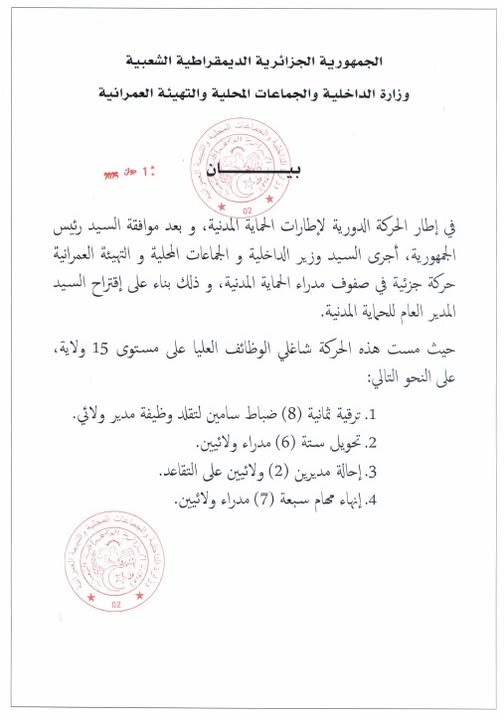 الجمهورية الجزائرية الديمقراطية الشعبية
وزارة الداخلية والجماعات المحلية والتهيئة العمرانية
بيـــــــــان
في إطار الحركة الدورية لإطارات الحماية المدنية، و بعد موافقة السيد رئيس
الجمهورية، أجرى السيد وزير الداخلية و الجماعات المحلية و التهيئة العمرانية
حركة جزئية في صفوف مدراء الحماية المدنية، و ذلك بناء على إقتراح السيد
المدير العام للحماية المدنية.
حيث مست هذه الحركة شاغلي الوظائف العليا على مستوى 15 ولاية،
على النحو التالي:
1. ترقية ثمانية (8) ضباط سامين لتقلد وظيفة مدير ولائي.
2. تحويل ستة (6) مدراء ولائيين.
3. إحالة مديرين (2) ولائيين على التقاعد.
4. إنهاء مهام سبعة (7) مدراء ولائيين.
02
02